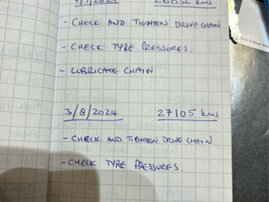 26632 kms
- CHECK AND TIGHTEN DRIVE CHAIN
- CHECK TYRE PRESSURES.
- LUBRICATE CHAIN
3/8/2024 27105 kms
- CHECK AND TIGHTEN DRIVE CHAIN
- CHECK TYRE PRESSURES.